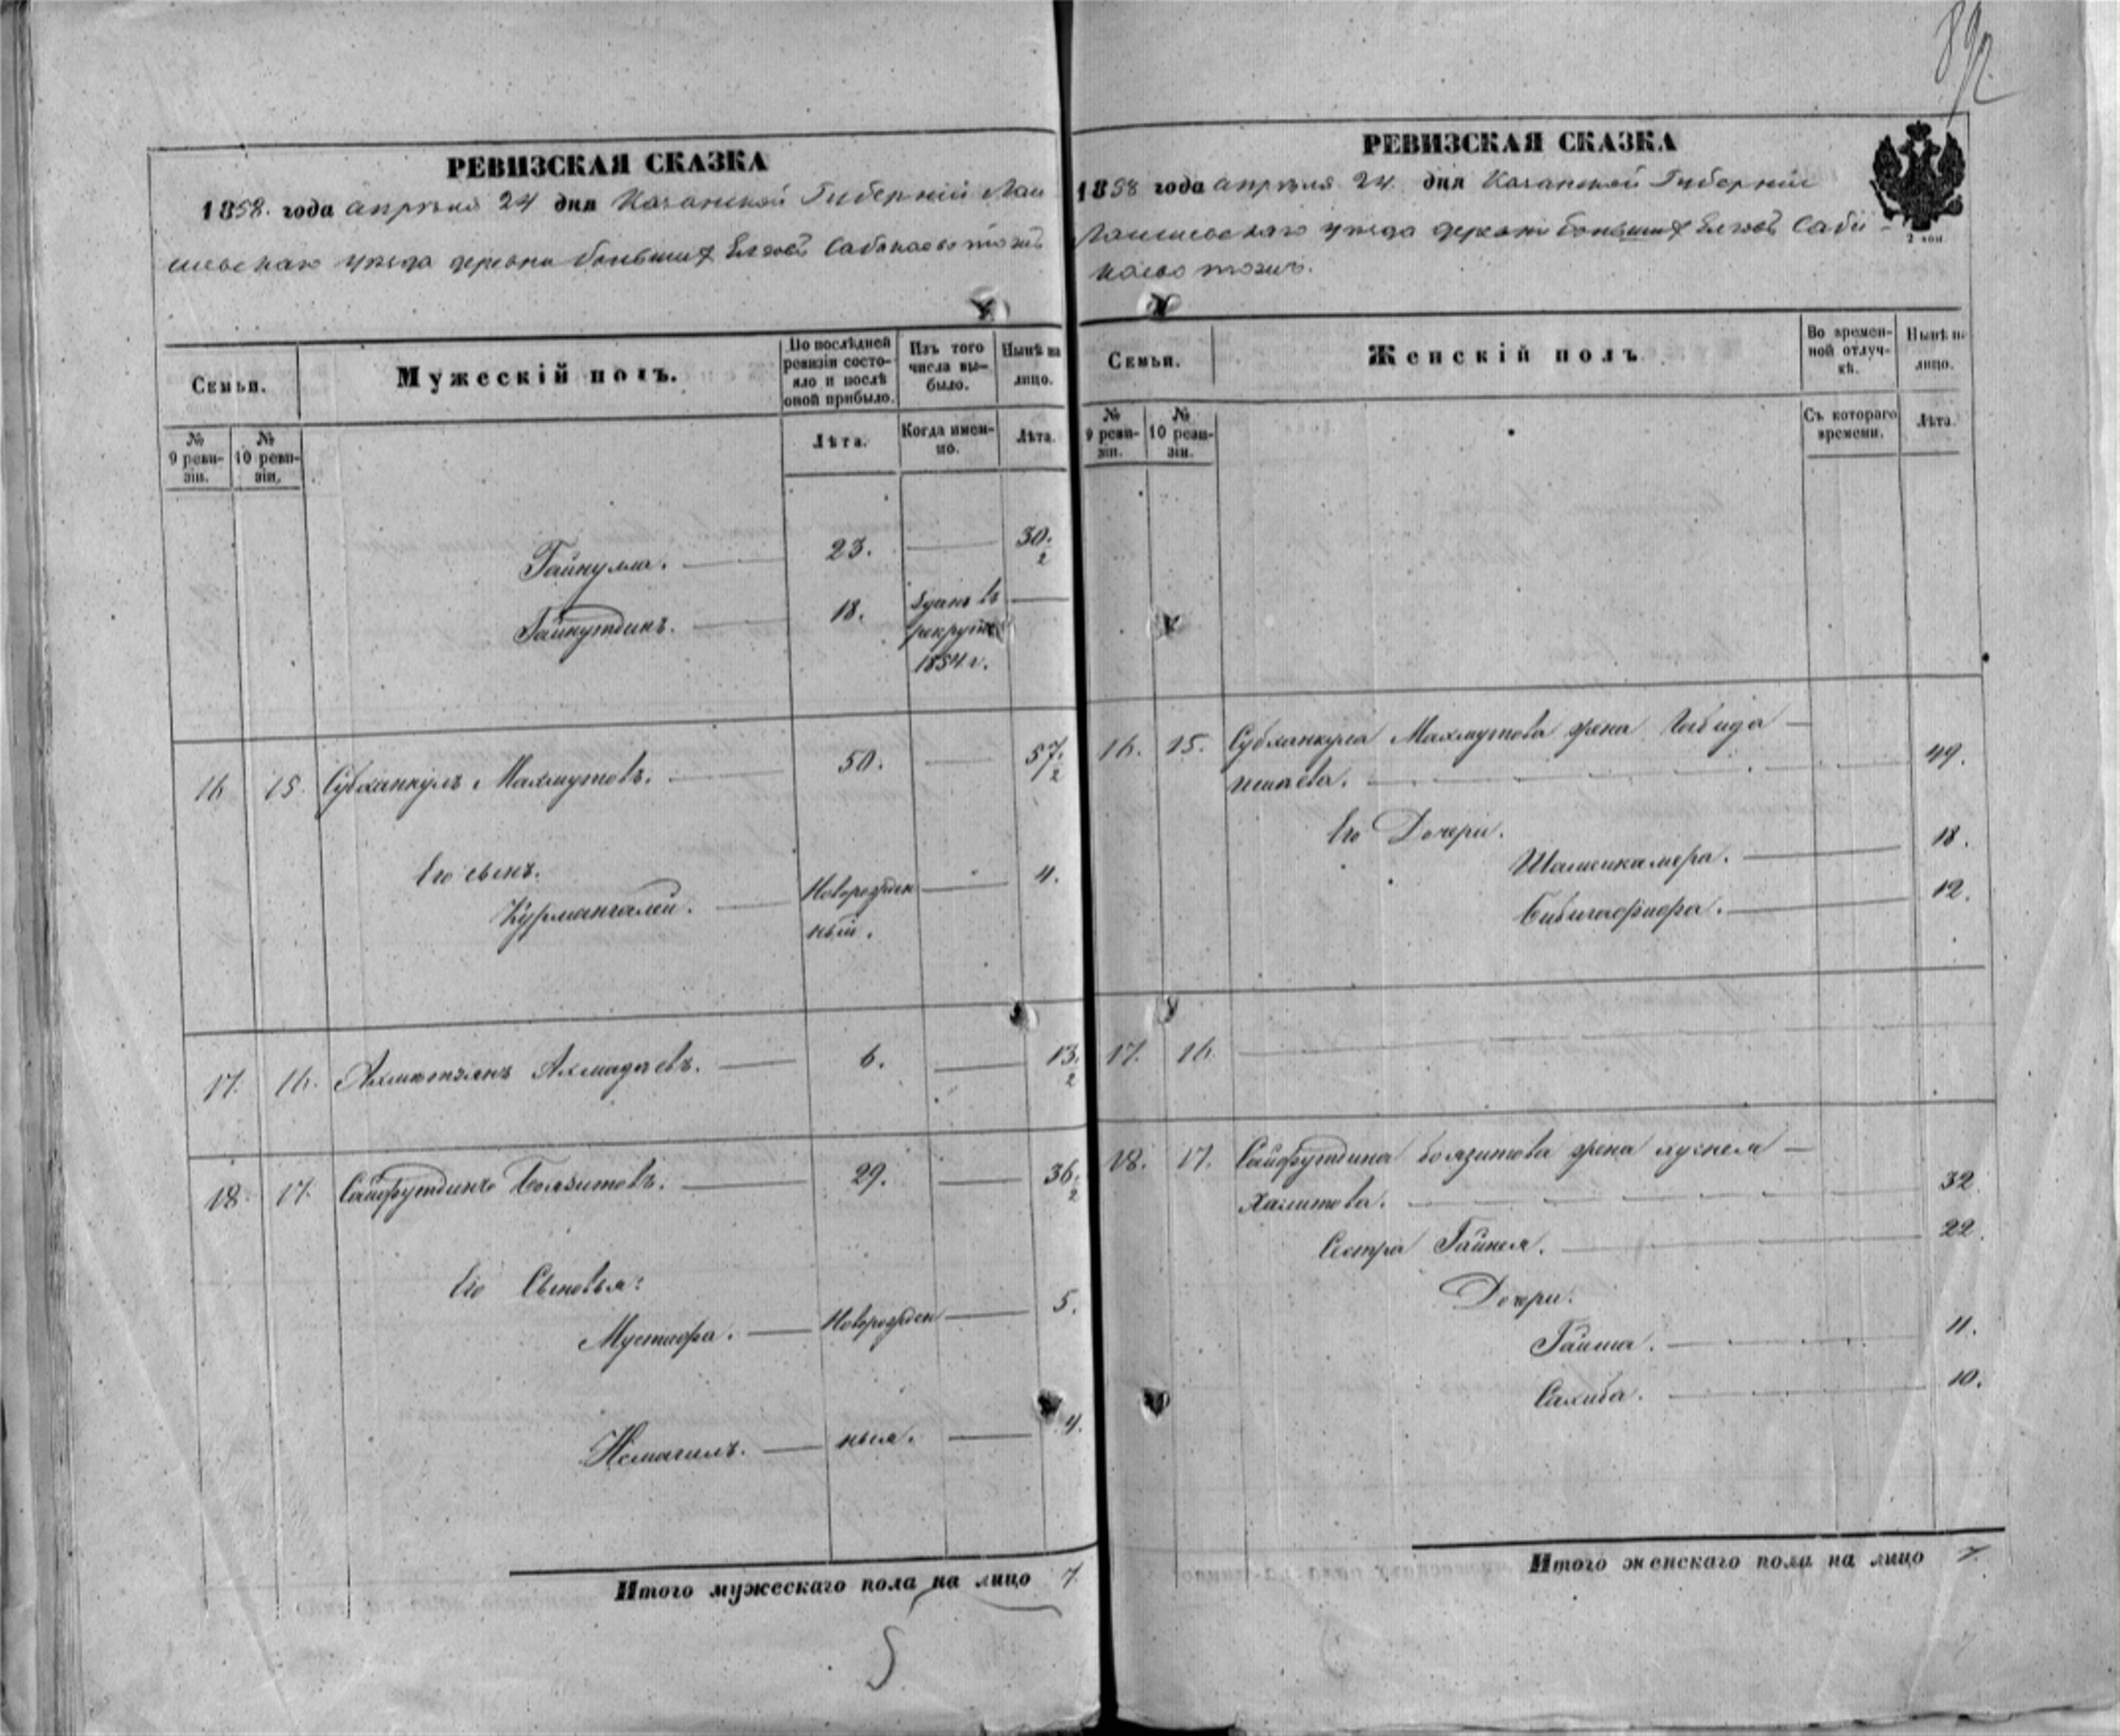 892
РЕВИЗСКАЯ СКАЗКА
1858. года апреля 24 дня Казанской Губернии Лаи
шевскаго уезда деревни большихъ Елговъ Сабакаево тожъ
Семьи.
Мужескій полъ.
По послѣдней ревизіи состояло и послѣ оной прибыло.
Изъ того числа выбыло.
Нынѣ на лицо.
№ 9 ревизіи.
№ 10 ревизіи.
Лѣта.
Когда именно.
Лѣта.
Гайнулла. 23. 30. 2
Гайнутдинъ. 18. Зданъ въ
рекруты
1854 г.
16 15. Субханкулъ Махмутовъ. 50. 57. 2
Его сынъ.
Курмангалей. Новорожден 4.
ный.
17. 16. Ахметзянъ Ахмадѣевъ. 6. 13. 2
18. 17. Сайфутдинъ Боязитовъ. 29. 36. 2
Его Сыновья:
Мустафа. Новорожден 5.
Исмагилъ. ныя. 4.
Итого мужескаго пола на лицо 7.
5
РЕВИЗСКАЯ СКАЗКА
1858 года апреля 24 дня Казанской Губерніи
Лаишевскаго уезда деревни большихъ Елговъ Саба-
каево тожъ.
2 коп.
Семьи.
Женскій полъ
Во временной отлучкѣ.
Нынѣ на лицо.
№ 9 ревизіи.
№ 10 ревизіи.
Съ котораго времени.
Лѣта.
16. 15. Субханкула Махмутова жена
49.
Его Дочери.
Шамсикамера. 18.
12.
17. 16.
18. 17. Сайфутдина боязитова жена
Халитова. 32.
Сестра Гайния. 22.
Дочери.
Гайша. 11.
Сахиба. 10.
Итого женскаго пола на лицо 7.